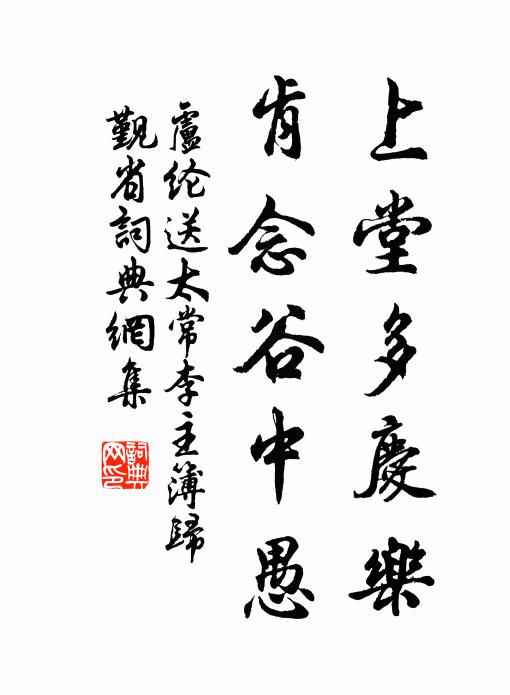 上堂多慶樂
肯念谷中愚
盧纶送太常李主簿歸
觐省詞典網集
詞典
网印